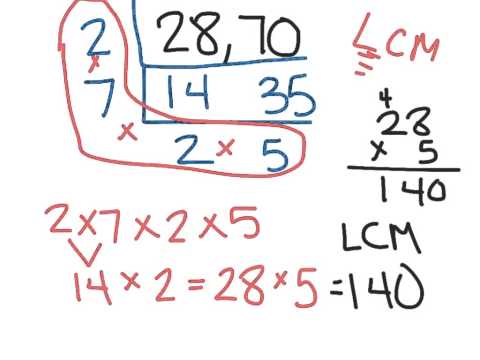 2 28,70 LCM
× 7 14 35
4
28
× × 5
2 × 5
140
2×7×2×5 LCM
14×2=28×5=140